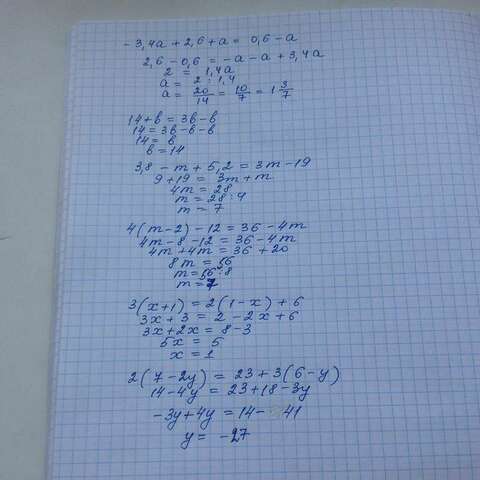 -3,4a + 2,6 + a = 0,6 - a
2,6 - 0,6 = -a - a + 3,4a
2 = 1,4a
a = 2 : 1,4
a = 20/14 = 10/7 = 1 3/7
14 + b = 3b - b
14 = 3b - b - b
14 = b
b = 14
3,8 - m + 5,2 = 3m - 19
9 + 19 = 3m + m
4m = 28
m = 28 : 4
m = 7
4(m - 2) - 12 = 36 - 4m
4m - 8 - 12 = 36 - 4m
4m + 4m = 36 + 20
8m = 56
m = 56 : 8
m = 7
3(x + 1) = 2(1 - x) + 6
3x + 3 = 2 - 2x + 6
3x + 2x = 8 - 3
5x = 5
x = 1
2(7 - 2y) = 23 + 3(6 - y)
14 - 4y = 23 + 18 - 3y
-3y + 4y = 14 - 41
y = -27